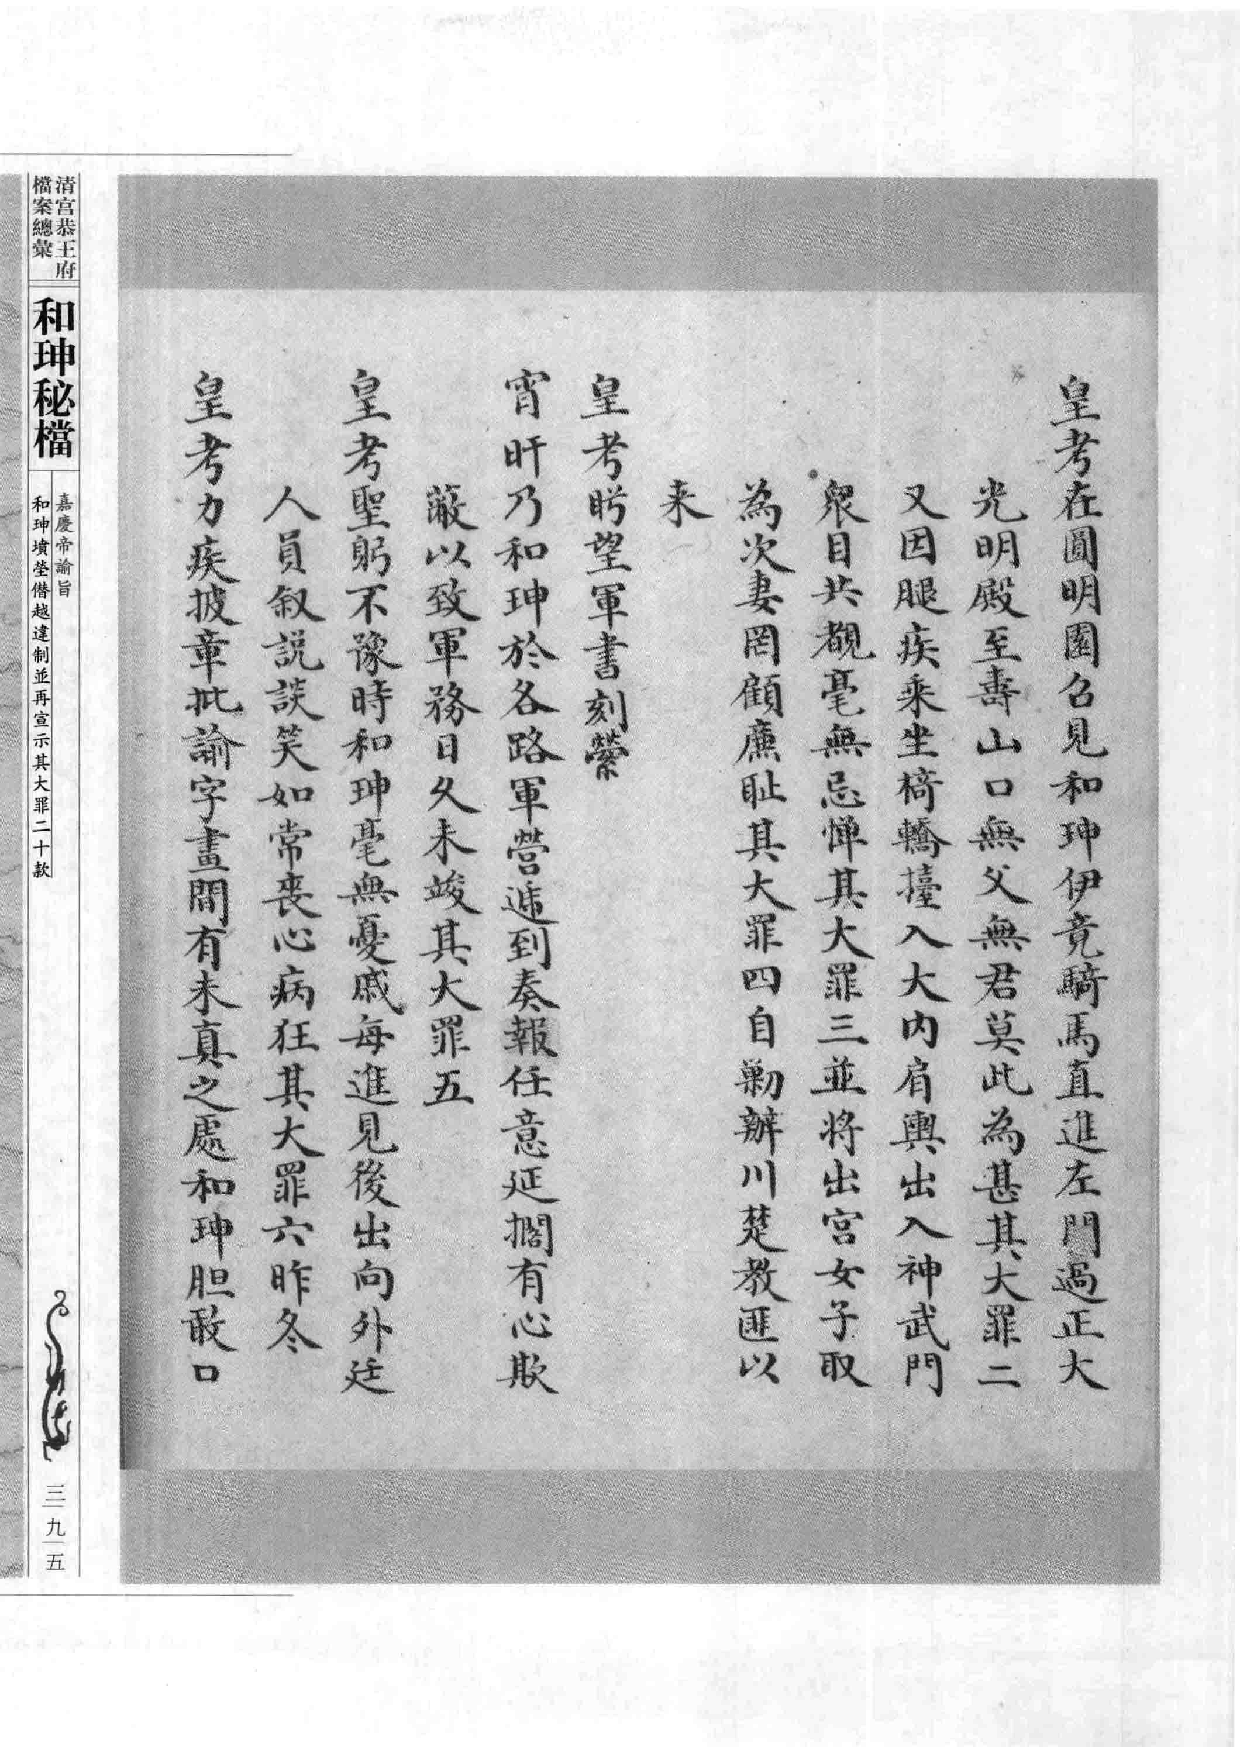 皇考在圓明園召見和珅伊竟騎馬直進左門過正大
光明殿至壽山口無父無君莫此為甚其大罪二
又因腿疾乘坐椅轎擡入大內肩輿出入神武門
衆目共覩毫無忌憚其大罪三並將出宮女子取
為次妻罔顧廉恥其大罪四自勦辦川楚教匪以
来
皇考盻望軍書刻縈
宵旰乃和珅於各路軍營遞到奏報任意延擱有心欺
蔽以致軍務日久未竣其大罪五
皇考聖躬不豫時和珅毫無憂戚每進見後出向外廷
人員叙説談笑如常喪心病狂其大罪六昨冬
皇考力疾披章批諭字畫間有未真之處和珅胆敢口
清宮恭王府
檔案總彙
和珅秘檔
嘉慶帝諭旨
和珅墳塋僭越違制並再宣示其大罪二十款
三九五